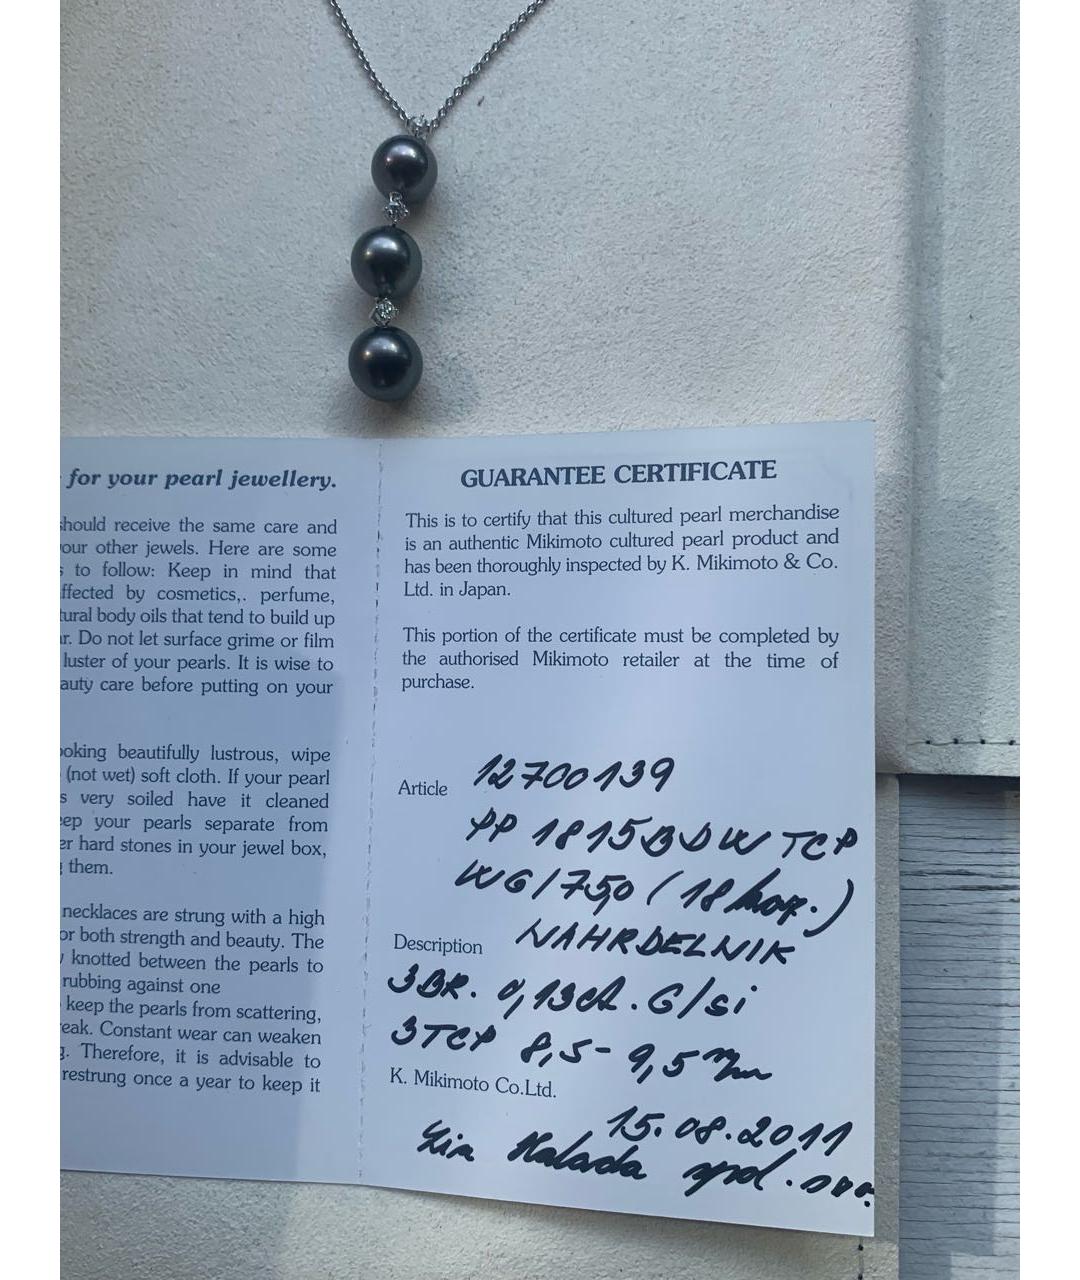 for your pearl jewellery.
should receive the same care and
your other jewels. Here are some
to follow: Keep in mind that
ffected by cosmetics,. perfume,
tural body oils that tend to build up
r. Do not let surface grime or film
luster of your pearls. It is wise to
auty care before putting on your
ooking beautifully lustrous, wipe
(not wet) soft cloth. If your pearl
s very soiled have it cleaned
eep your pearls separate from
er hard stones in your jewel box,
them.
necklaces are strung with a high
or both strength and beauty. The
knotted between the pearls to
rubbing against one
keep the pearls from scattering,
reak. Constant wear can weaken
g. Therefore, it is advisable to
restrung once a year to keep it
GUARANTEE CERTIFICATE
This is to certify that this cultured pearl merchandise
is an authentic Mikimoto cultured pearl product and
has been thoroughly inspected by K. Mikimoto & Co.
Ltd. in Japan.
This portion of the certificate must be completed by
the authorised Mikimoto retailer at the time of
purchase.
Article 12700139
PP 1815BDW TCP
WG/750 (18 kar.)
Description NAHRDELNIK
3BR. 0,13ct. G/si
3TCP 8,5-9,5mm
K. Mikimoto Co.Ltd.
15.08.2011
Halada spol.